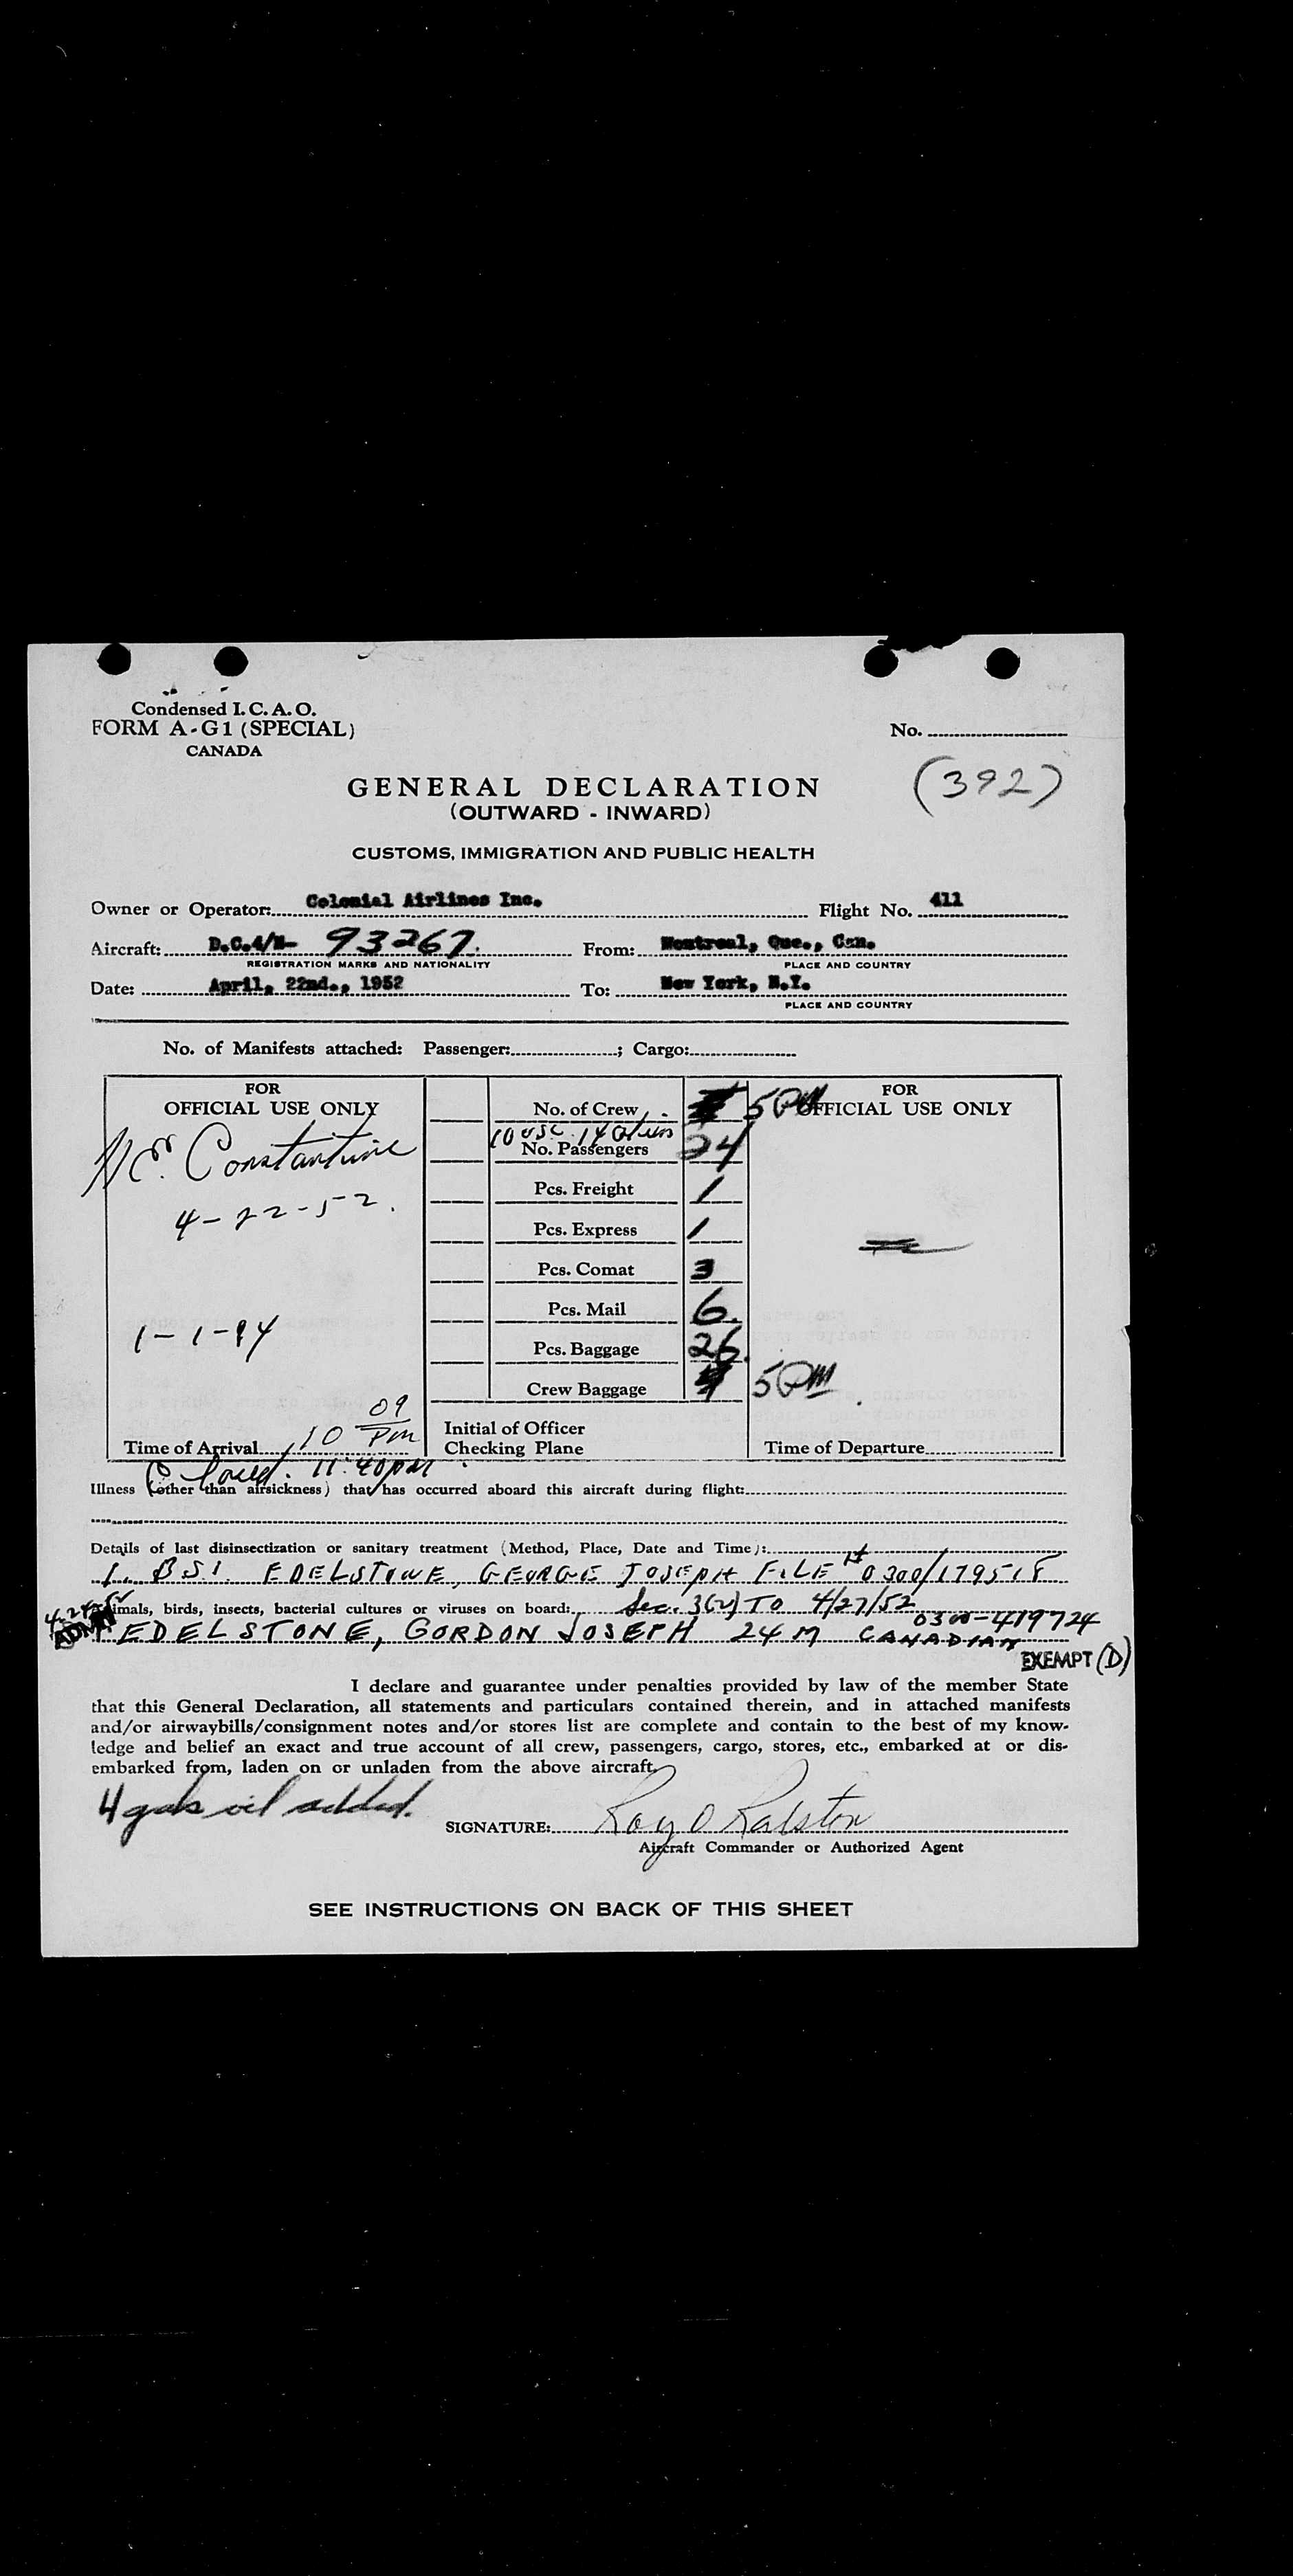 Condensed I.C.A.O.
FORM A-G1 (SPECIAL)
CANADA
No.
(392)
GENERAL DECLARATION
(OUTWARD - INWARD)
CUSTOMS, IMMIGRATION AND PUBLIC HEALTH
Owner or Operator: Colonial Airlines Inc. Flight No. 411
Aircraft: D.C.4/N- 93267. From: Montreal, Que., Can.
REGISTRATION MARKS AND NATIONALITY PLACE AND COUNTRY
Date: April, 22nd., 1952 To: New York, N.Y.
PLACE AND COUNTRY
No. of Manifests attached: Passenger: ; Cargo:
FOR
OFFICIAL USE ONLY
Constantine
4-22-52.
1-1-94
Time of Arrival 10 09 PM
No. of Crew 5 PM
10 USC 14 Aliens
No. Passengers 24
Pcs. Freight 1
Pcs. Express 1
Pcs. Comat 3
Pcs. Mail 6
Pcs. Baggage 26
Crew Baggage 5 PM
Initial of Officer
Checking Plane
FOR
OFFICIAL USE ONLY
Time of Departure
11:40 PM
Illness (other than airsickness) that has occurred aboard this aircraft during flight:
Details of last disinsectization or sanitary treatment (Method, Place, Date and Time):
1. B.S.I. EDELSTONE, GEORGE JOSEPH FILE # 0300/179515
Animals, birds, insects, bacterial cultures or viruses on board: Sec. 3(2) TO 4/27/52
0300-419724
EDELSTONE, GORDON JOSEPH 24 M CANADIAN
EXEMPT (D)
I declare and guarantee under penalties provided by law of the member State
that this General Declaration, all statements and particulars contained therein, and in attached manifests
and/or airwaybills/consignment notes and/or stores list are complete and contain to the best of my know-
ledge and belief an exact and true account of all crew, passengers, cargo, stores, etc., embarked at or dis-
embarked from, laden on or unladen from the above aircraft.
4 gals oil added.
SIGNATURE: Roy O Ralston
Aircraft Commander or Authorized Agent
SEE INSTRUCTIONS ON BACK OF THIS SHEET